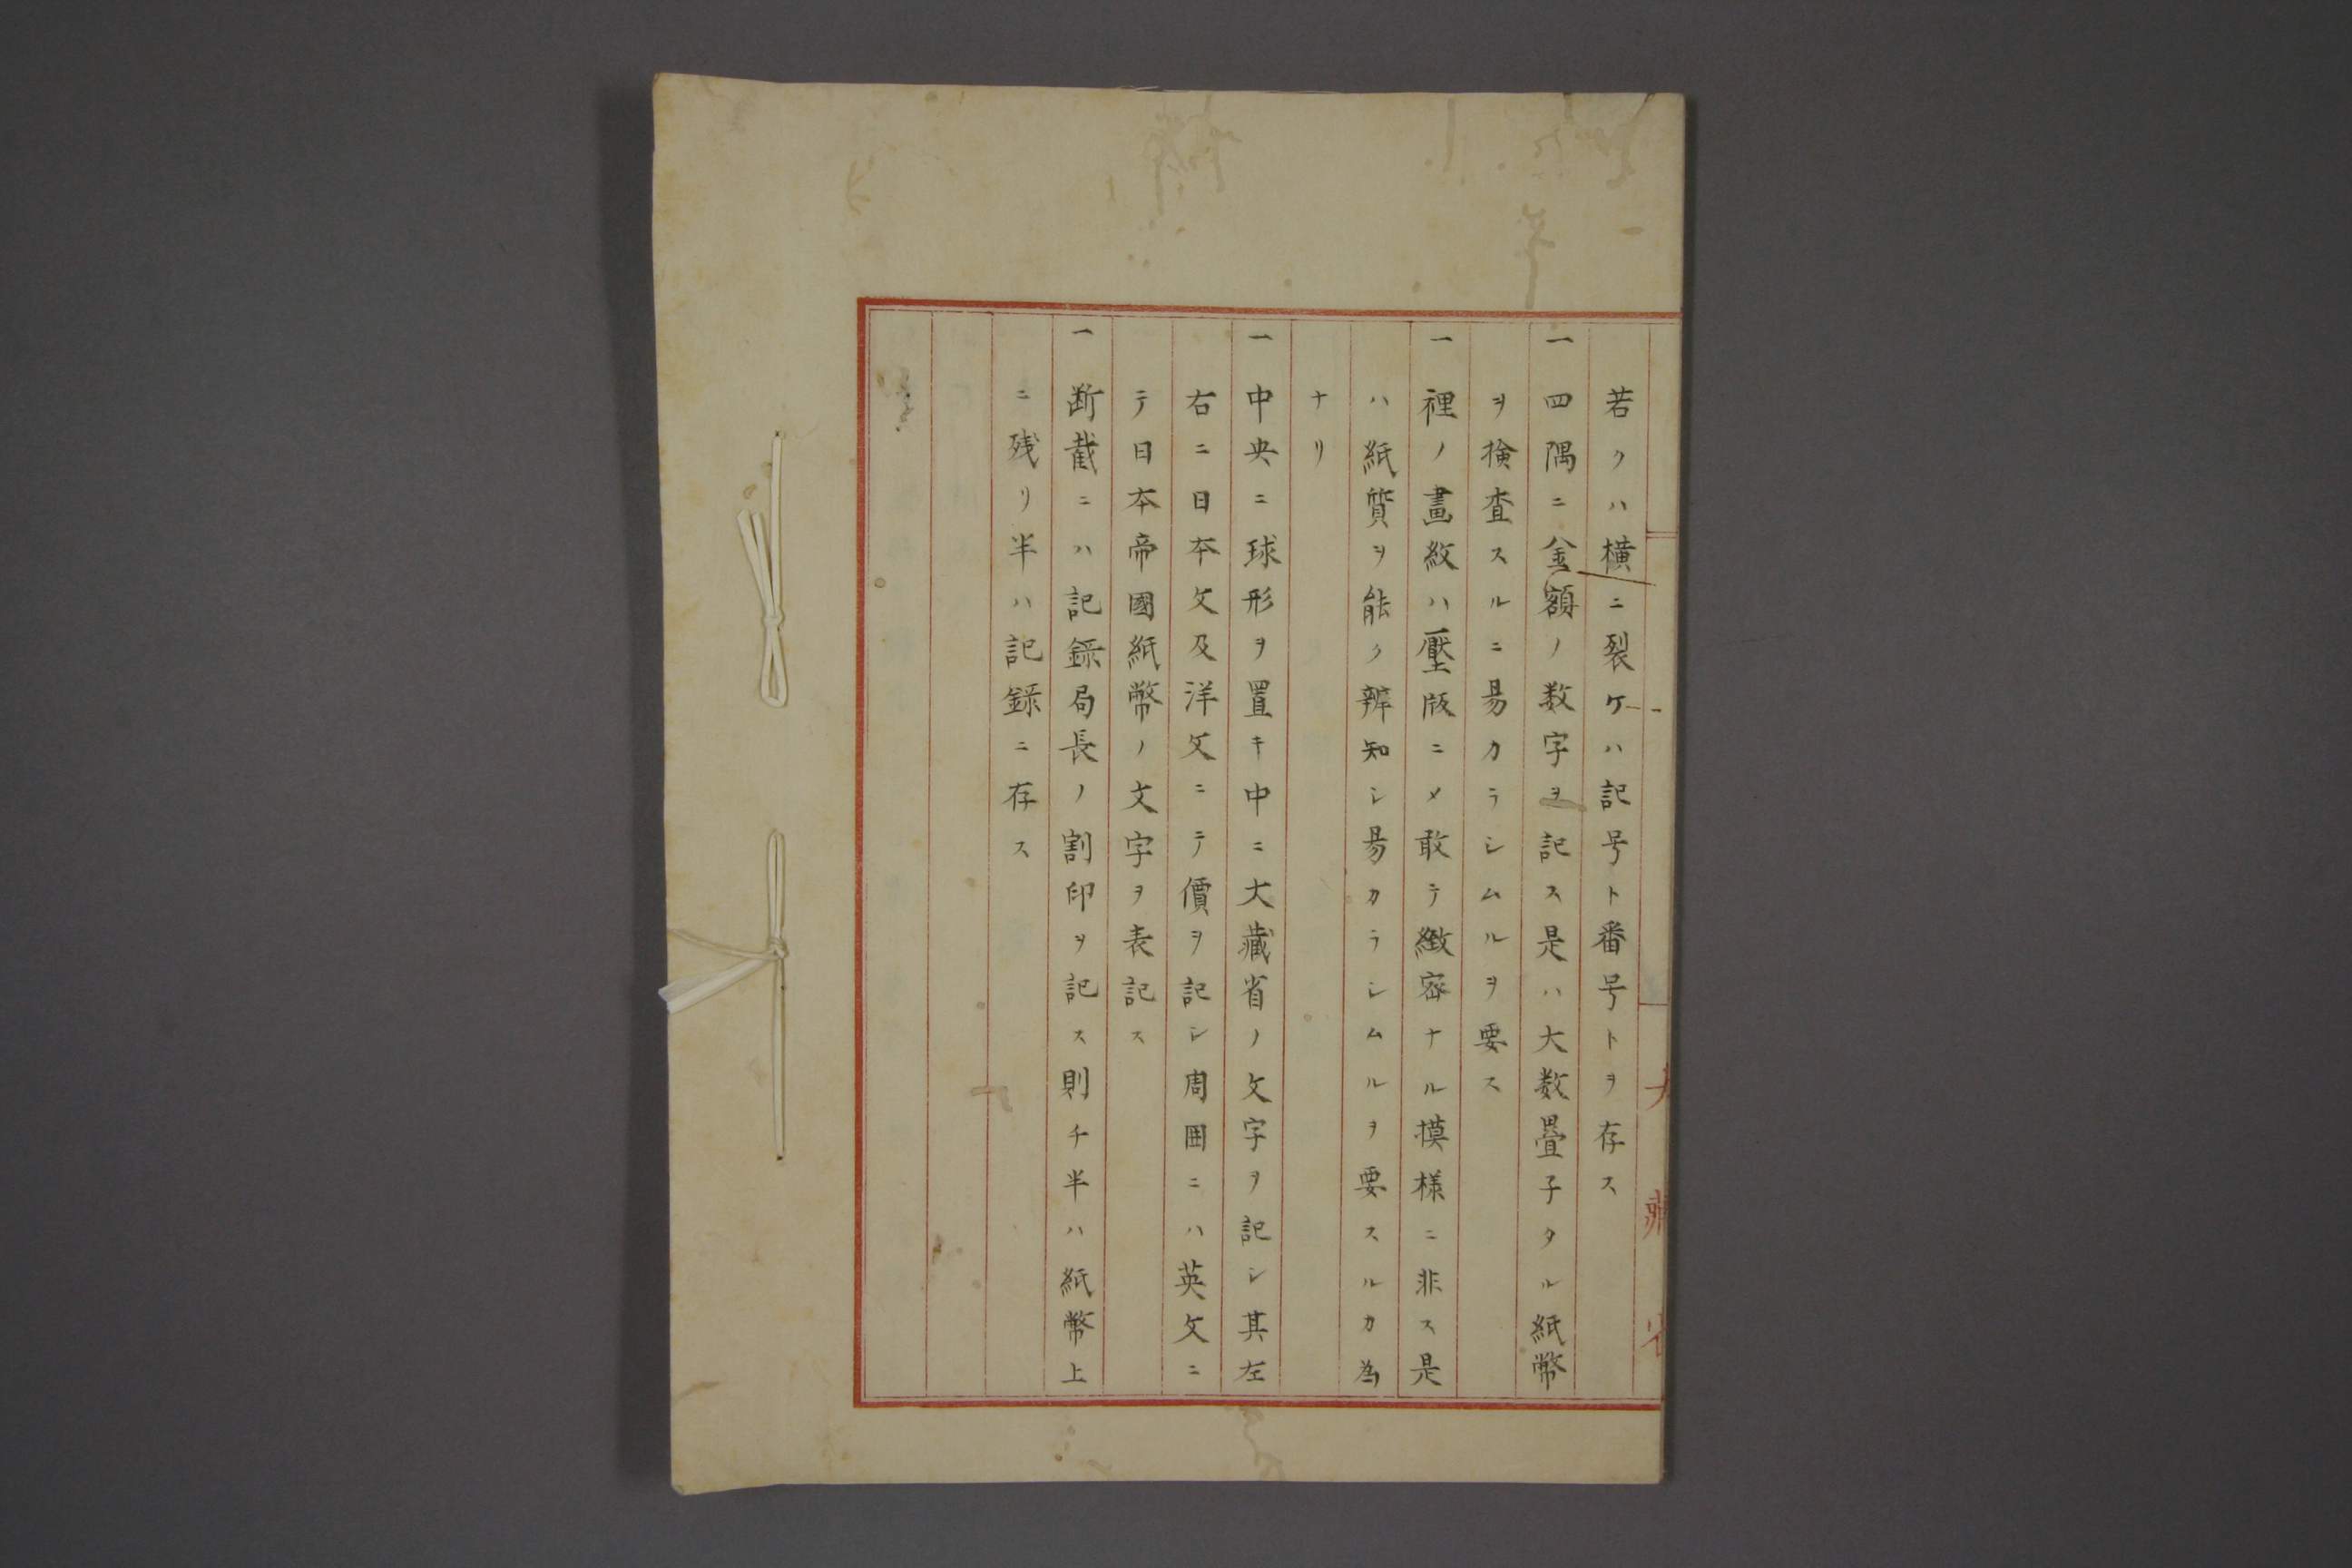 若クハ横ニ裂ケハ記号ト番号トヲ存ス
一四隅ニ金額ノ数字ヲ記ス是ハ大数疊子タル紙幣
ヲ検査スルニ易カラシムルヲ要ス
一裡ノ畫紋ハ壓版ニメ敢テ緻密ナル摸様ニ非ス是
ハ紙質ヲ能ク辨知シ易カラシムルヲ要スルカ為
ナリ
一中央ニ球形ヲ置キ中ニ大藏省ノ文字ヲ記シ其左
右ニ日本文及洋文ニテ價ヲ記シ周囲ニハ英文ニ
テ日本帝國紙幣ノ文字ヲ表記ス
一断截ニハ記錄局長ノ割印ヲ記ス則チ半ハ紙幣上
ニ残リ半ハ記錄ニ存ス